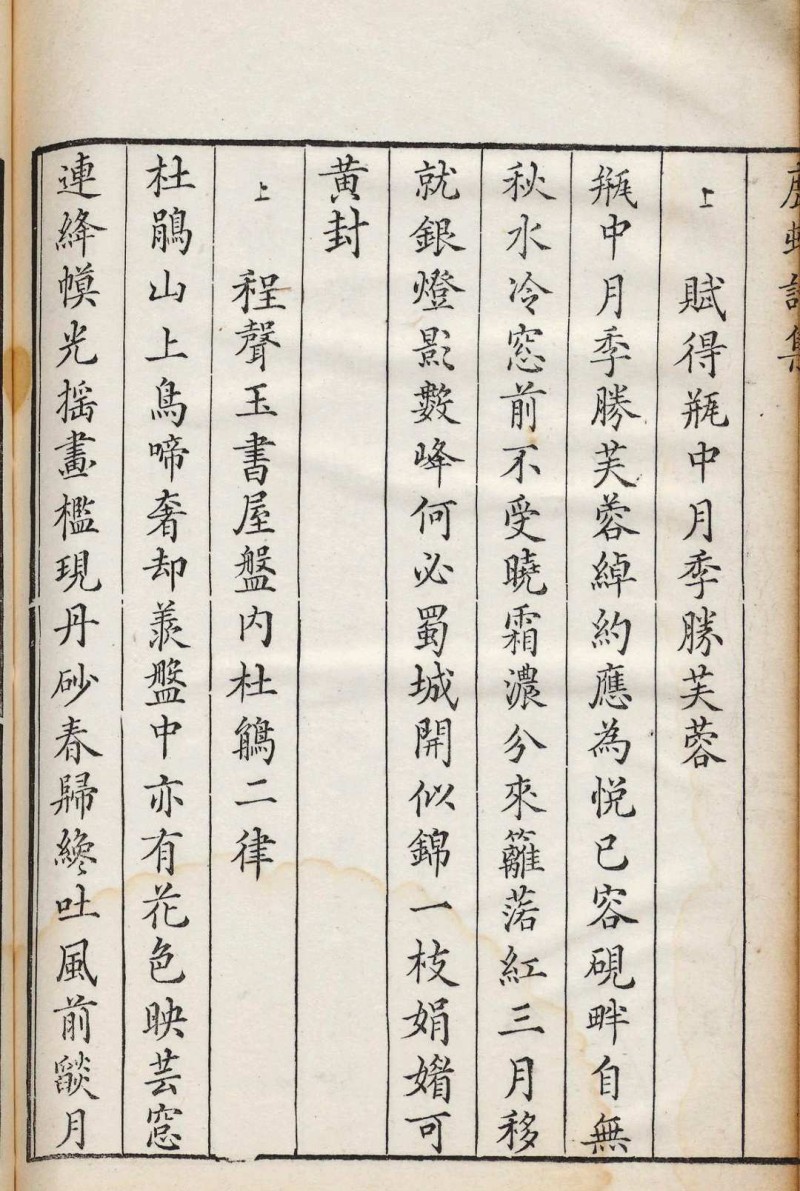 詩集
上 賦得瓶中月季勝芙蓉
瓶中月季勝芙蓉綽約應為悅已容硯畔自無
秋水冷窓前不受曉霜濃分來籬落紅三月移
就銀燈影數峰何必蜀城開似錦一枝娟媚可
黄封
上 程聲玉書屋盤内杜鵑二律
杜鵑山上鳥啼奢却羨盤中亦有花色映芸窓
連絳幙光揺畫檻現丹砂春歸纔吐風前燄月